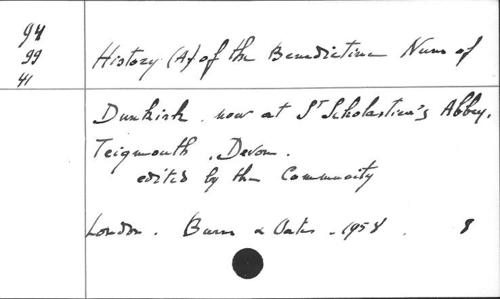 94
99
41
History (A) of the Benedictine Nuns of
Dunkirk now at St Scholastica's Abbey,
Teignmouth, Devon.
edited by the Community
London. Burns & Oates. 1958. 8